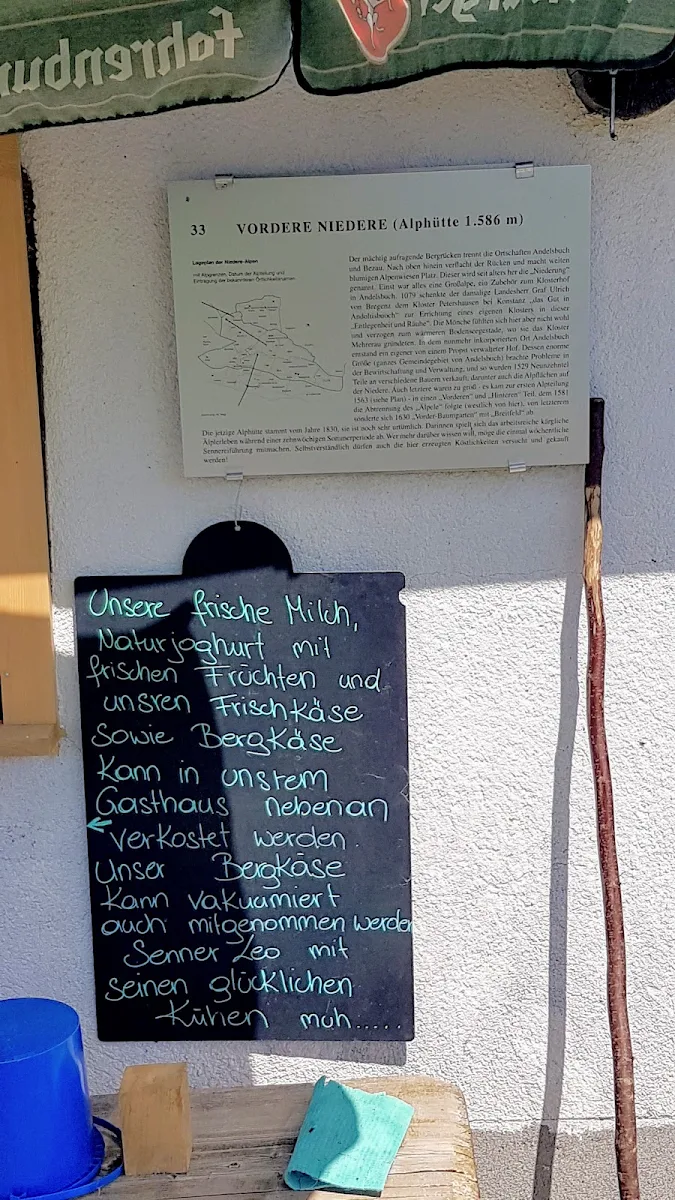 Fohrenbur
33 VORDERE NIEDERE (Alphütte 1.586 m)
Lageplan der Niedere-Alpen
mit Alpgrenzen, Datum der Abteilung und
Eintragung der bekanntesten Örtlichkeitsnamen
Der mächtig aufragende Bergrücken trennt die Ortschaften Andelsbuch
und Bezau. Nach oben hinein verflacht der Rücken und macht weiten
blumigen Alpenwiesen Platz. Dieser wird seit alters her die „Niederung"
genannt. Einst war alles eine Großalpe, ein Zubehör zum Klosterhof
in Andelsbuch. 1079 schenkte der damalige Landesherr Graf Ulrich
von Bregenz dem Kloster Petershausen bei Konstanz „das Gut in
Andoltisbuoch" zur Errichtung eines eigenen Klosters in dieser
„Entlegenheit und Räuhe". Die Mönche fühlten sich hier aber nicht wohl
und verzogen zum wärmeren Bodenseegestade, wo sie das Kloster
Mehrerau gründeten. In dem nunmehr inkorporierten Ort Andelsbuch
entstand ein eigener von einem Propst verwalteter Hof. Dessen enorme
Größe (ganzes Gemeindegebiet von Andelsbuch) brachte Probleme in
der Bewirtschaftung und Verwaltung, und so wurden 1529 Neunzehntel
Teile an verschiedene Bauern verkauft; darunter auch die Alpflächen auf
der Niedere. Auch letztere waren zu groß - es kam zur ersten Alpteilung
1563 (siehe Plan) - in einen „Vorderen" und „Hinteren" Teil, dem 1581
die Abtrennung des „Älpele" folgte (westlich von hier), von letzterem
sonderte sich 1630 „Vorder-Baumgarten" mit „Breitfeld" ab.
Die jetzige Alphütte stammt vom Jahre 1830, sie ist noch sehr urtümlich. Darinnen spielt sich das arbeitsreiche kärgliche
Älplerleben während einer zehnwöchigen Sommerperiode ab. Wer mehr darüber wissen will, möge die einmal wöchentliche
Sennereiführung mitmachen. Selbstverständlich dürfen auch die hier erzeugten Köstlichkeiten versucht und gekauft
werden!
Unsere frische Milch,
Naturjoghurt mit
frischen Früchten und
unsren Frischkäse
Sowie Bergkäse
Kann in unsrem
Gasthaus nebenan
verkostet werden.
Unser Bergkäse
Kann vakuumiert
auch mitgenommen werden
Senner Leo mit
seinen glücklichen
Kühen muh.....